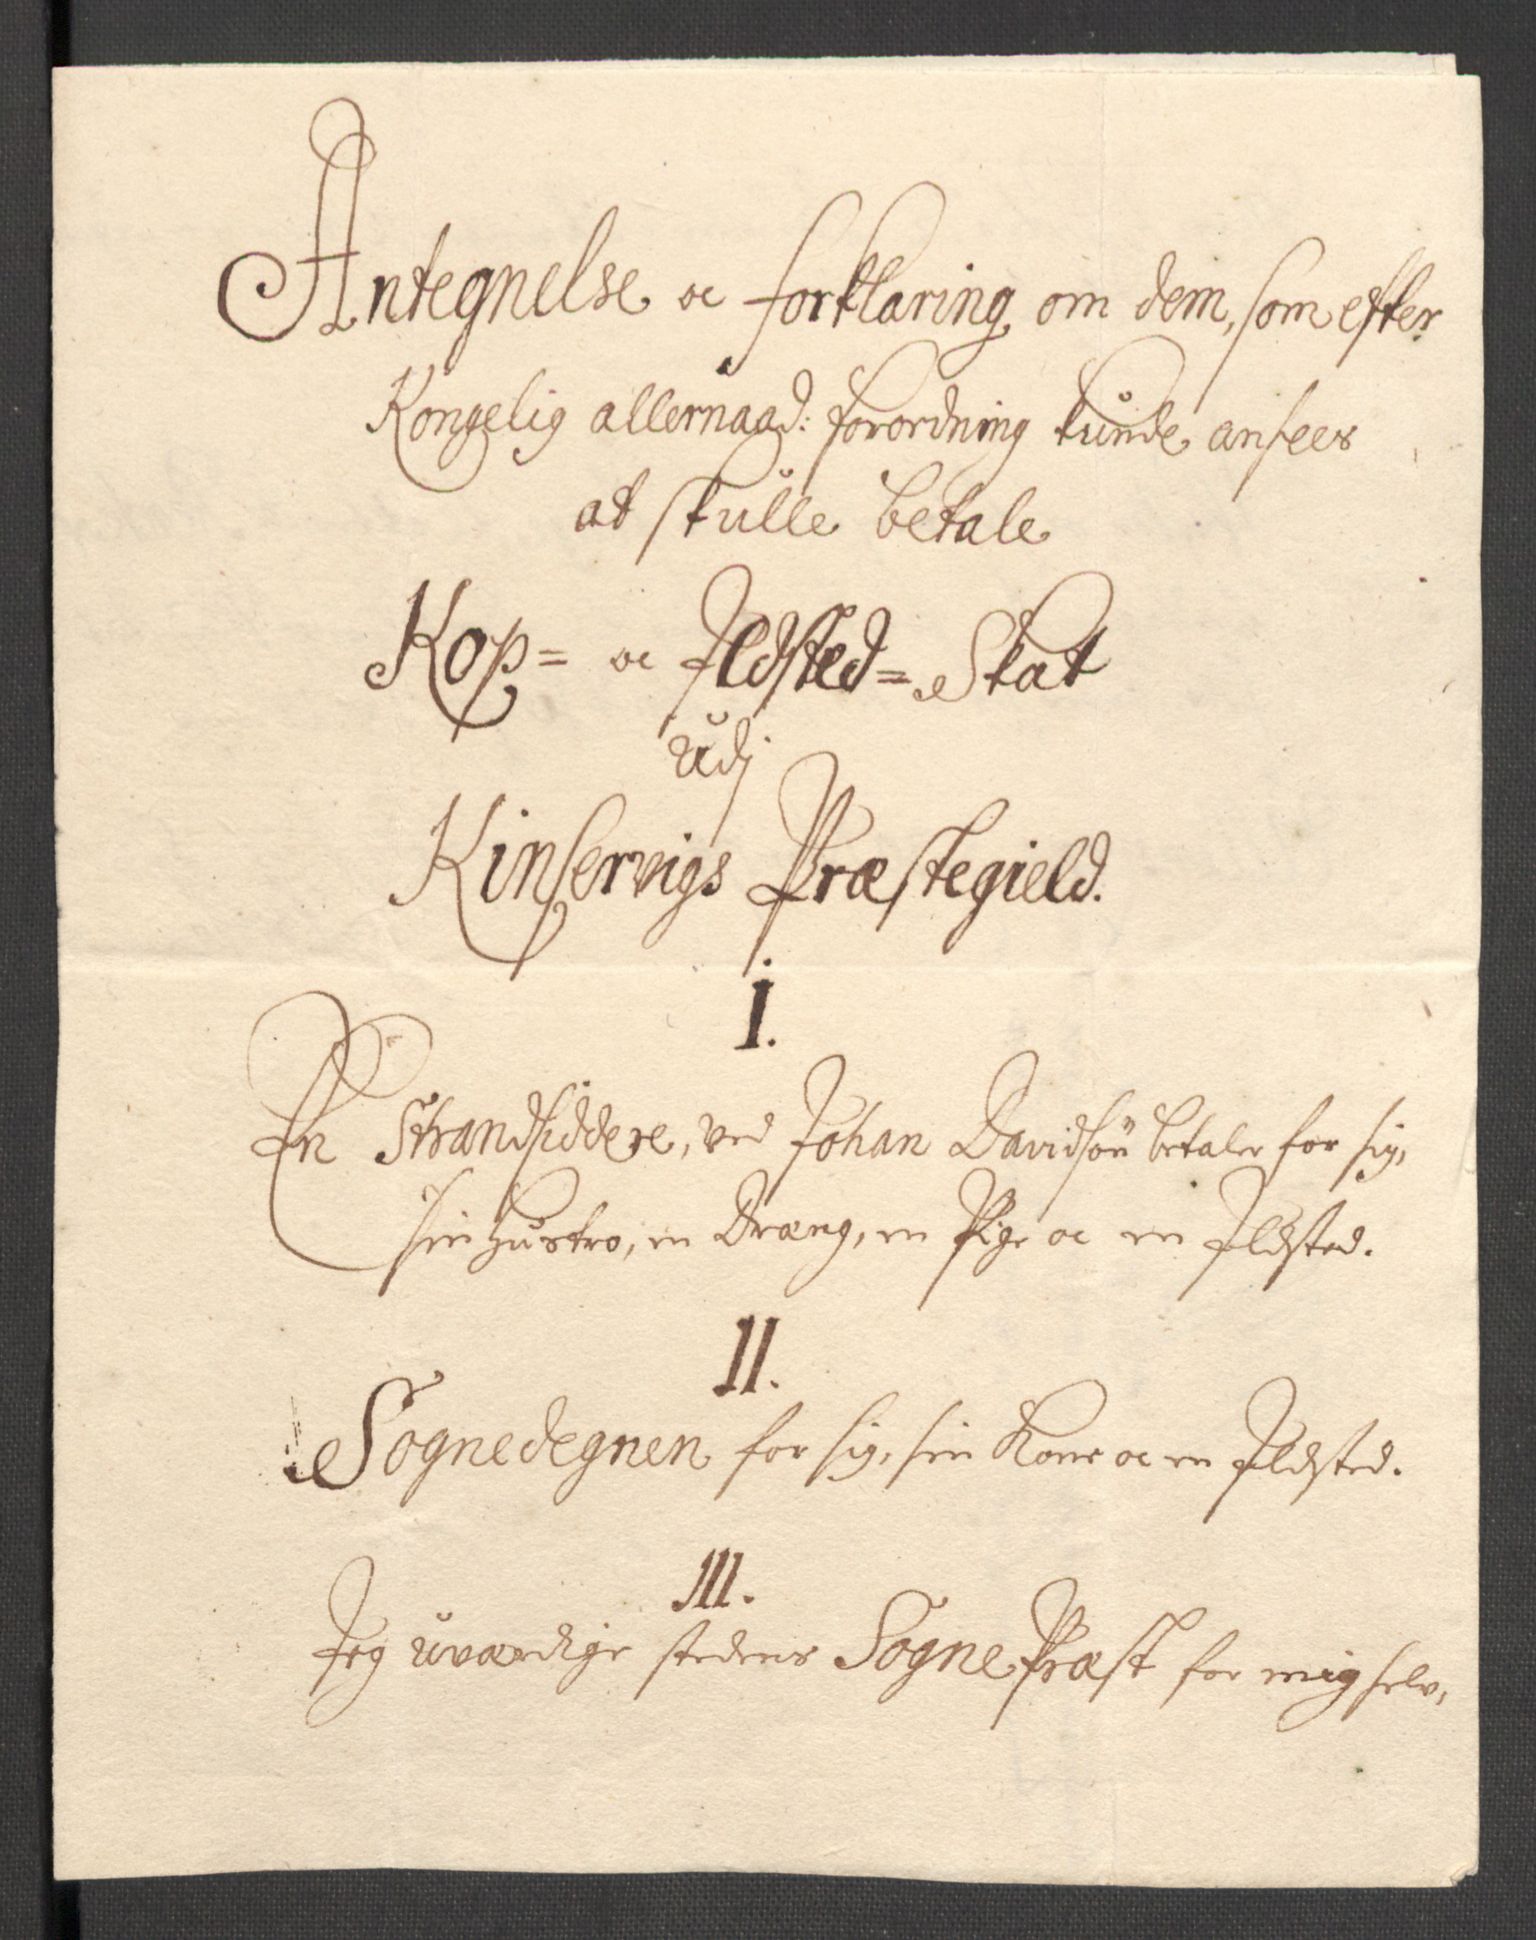 Antegnelse oc forklaring om dem, som efter
Kongelig allernaad: forordning kunde ansees
at skulle betale
Kop= oc Ildsted= Skat
udj
Kinservigs Præstegield.
I.
En Strandsiddere, ved Johan Davidsøn betaler for sig,
sin Hustro, en Dræng, en Pige oc en Ildsted.
II.
Sognedegnen for sig, sin Kone oc en Ildsted.
III.
Jeg uværdige stedens Sogne Præst for mig selv,